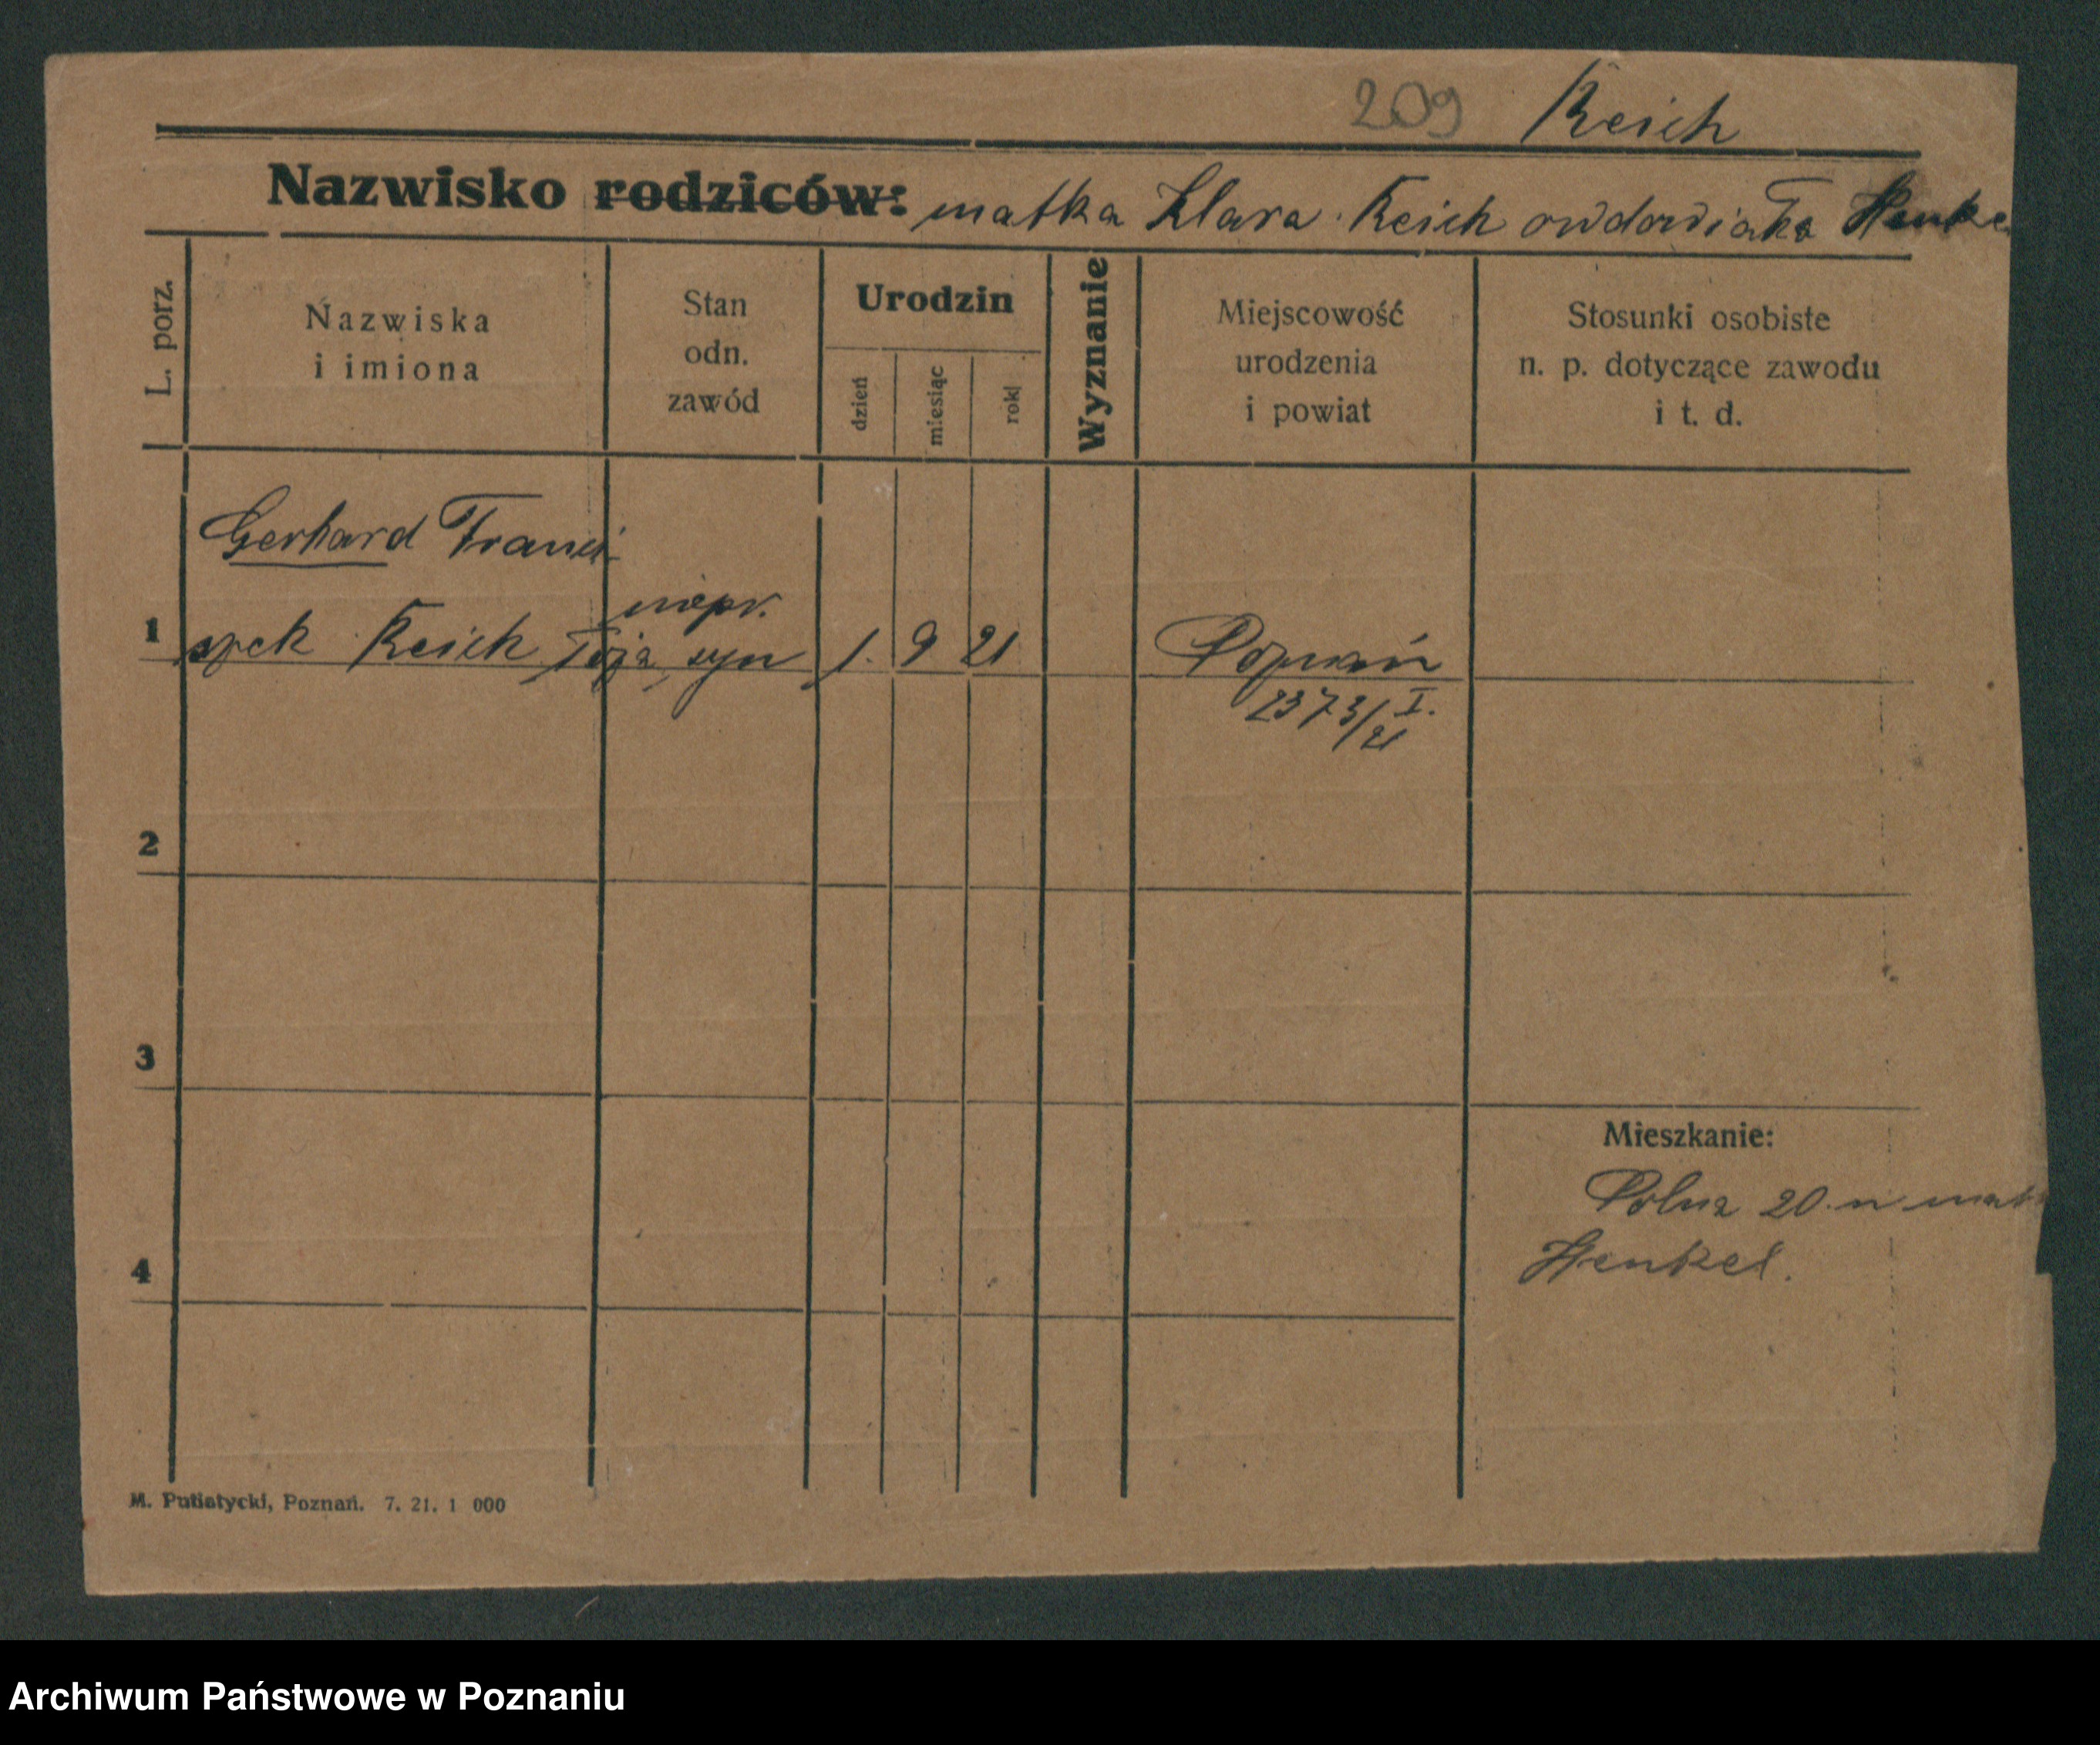 209 Reich
Nazwisko rodziców: matka Klara Reich owdowiała Henke
L. porz.
Nazwiska
i imiona
Stan
odn.
zawód
Urodzin
dzień
miesiąc
rok
Wyznanie
Miejscowość
urodzenia
i powiat
Stosunki osobiste
n. p. dotyczące zawodu
i t. d.
Gerhard Franci-
niepr.
1 szek Reich syn 1. 9 21 Poznań
2373/I.
21
2
3
Mieszkanie:
Polna 20
Henkel.
4
M. Putiatycki, Poznań. 7. 21. 1 000
Archiwum Państwowe w Poznaniu